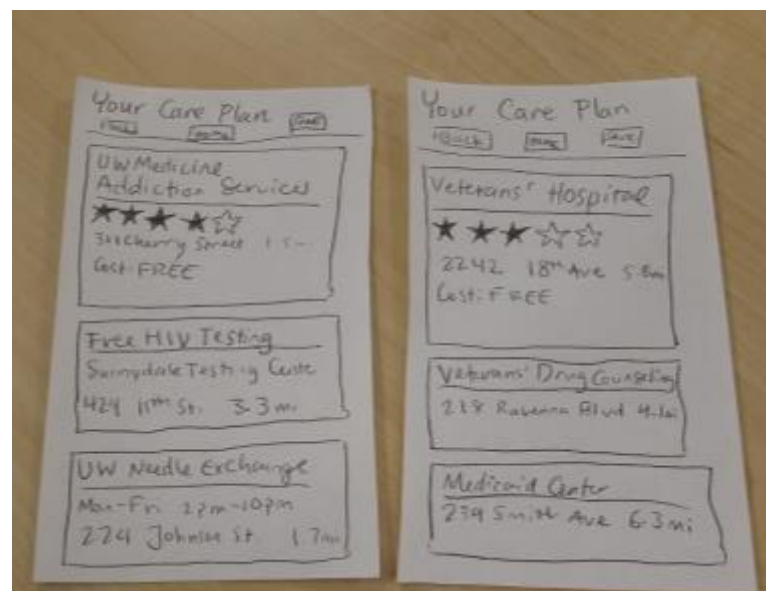 Your Care Plan
UW Medicine
Addiction Services
Cherry Street
Cost: FREE
Free HIV Testing
Sunnydale Testing
424 11th St. 3.3 mi
UW Needle Exchange
Mon-Fri 2pm-10pm
224 Johnson St. 1.7mi
Your Care Plan
Back Home Save
Veterans' Hospital
2242 18th Ave
Cost: FREE
Veterans' Drug Counseling
218 Ravenna Blvd
Medicaid Center
239 Smith Ave 6.3 mi